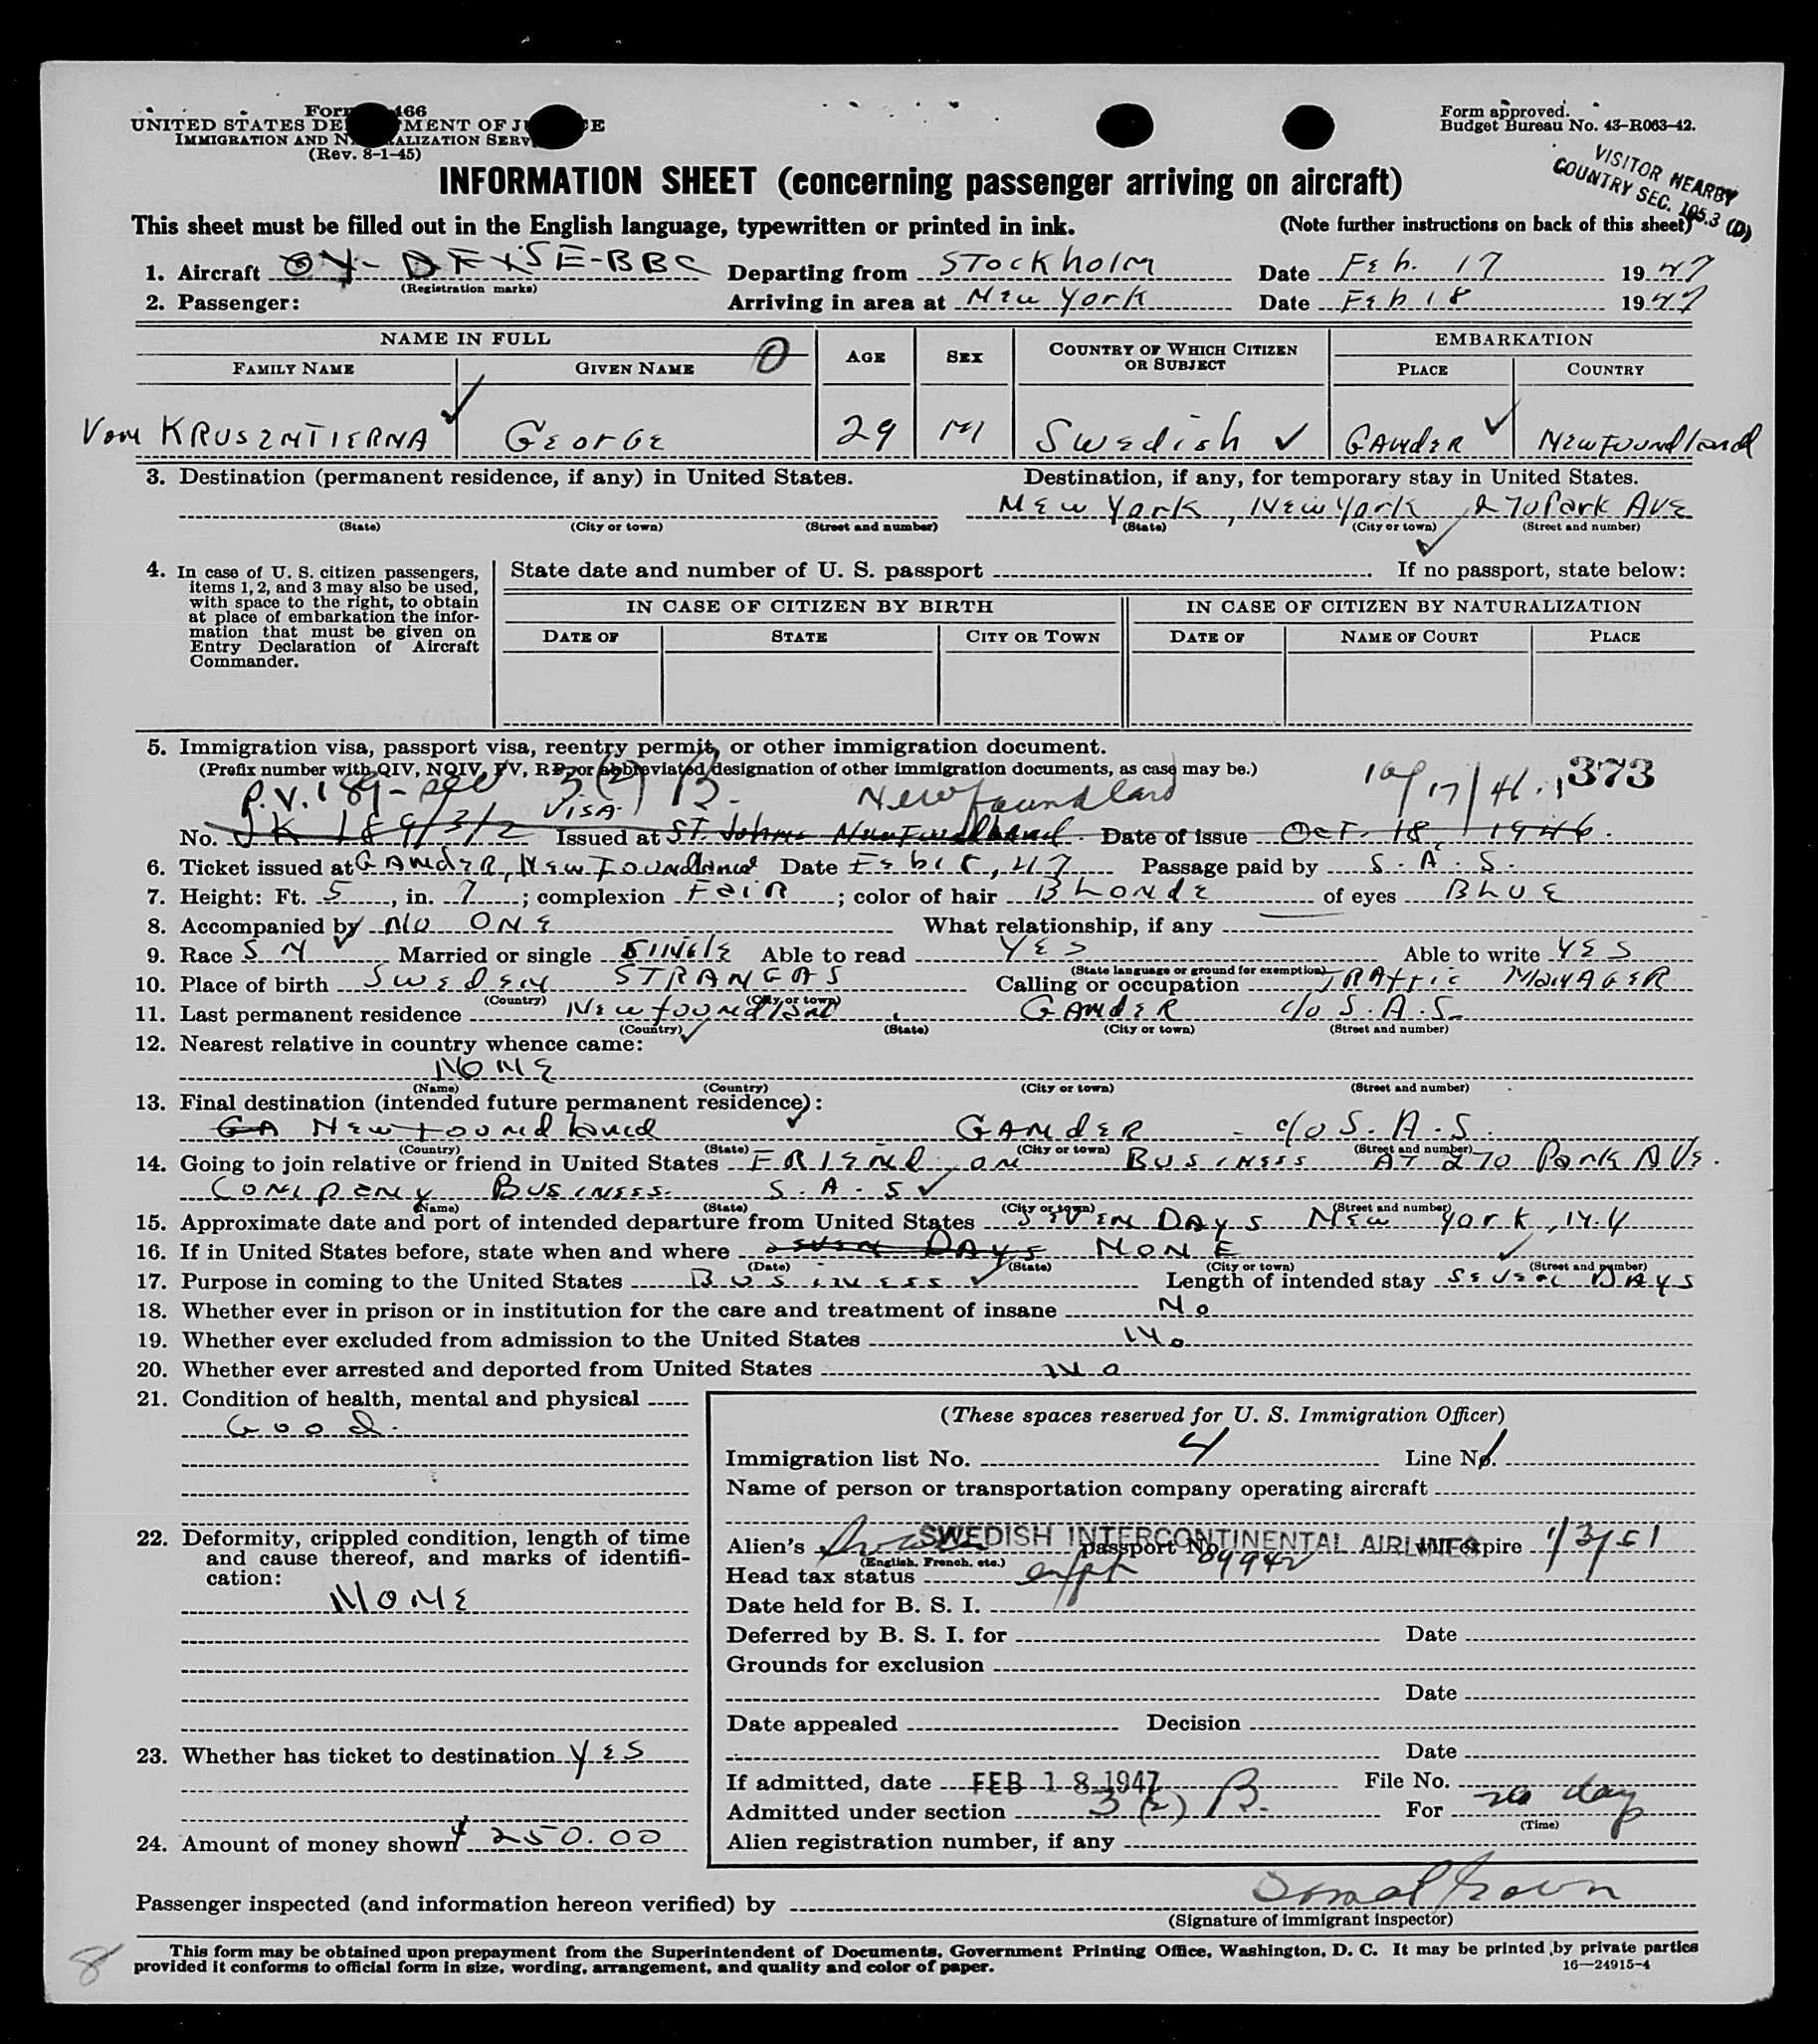 Form 466
UNITED STATES DEPARTMENT OF JUSTICE
IMMIGRATION AND NATURALIZATION SERVICE
(Rev. 8-1-45)
Form approved.
Budget Bureau No. 43-R063-42.
VISITOR NEARBY
COUNTRY SEC. 105.3 (D)
INFORMATION SHEET (concerning passenger arriving on aircraft)
This sheet must be filled out in the English language, typewritten or printed in ink. (Note further instructions on back of this sheet)
1. Aircraft SE-BBC Departing from STockholm Date Feb. 17 1947
(Registration marks)
2. Passenger: Arriving in area at New York Date Feb 18 1947
NAME IN FULL 0 AGE SEX COUNTRY OF WHICH CITIZEN OR SUBJECT EMBARKATION
FAMILY NAME GIVEN NAME PLACE COUNTRY
Von KRUSENTIERNA GEORGE 29 M Swedish GANDER NEWFOUNdland
3. Destination (permanent residence, if any) in United States. Destination, if any, for temporary stay in United States.
New York, New York 270 Park AVE
(State) (City or town) (Street and number) (State) (City or town) (Street and number)
4. In case of U. S. citizen passengers, items 1, 2, and 3 may also be used, with space to the right, to obtain at place of embarkation the information that must be given on Entry Declaration of Aircraft Commander.
State date and number of U. S. passport If no passport, state below:
IN CASE OF CITIZEN BY BIRTH IN CASE OF CITIZEN BY NATURALIZATION
DATE OF STATE CITY OR TOWN DATE OF NAME OF COURT PLACE
5. Immigration visa, passport visa, reentry permit, or other immigration document.
(Prefix number with QIV, NQIV, PV, RP, or abbreviated designation of other immigration documents, as case may be.)
P.V. 189 - sec 3(2) B. Newfoundland 10/17/46. 373
No. JK 189/3/2 VISA Issued at ST. Johns Newfundland. Date of issue Oct. 18, 1946.
6. Ticket issued at GANDER, NEWFOUNdland Date Feb 15, 47 Passage paid by S.A.S.
7. Height: Ft. 5, in. 7; complexion FaiR; color of hair BLONdE of eyes BLUE
8. Accompanied by NO ONE What relationship, if any
9. Race SN Married or single SINGLE Able to read YES Able to write YES
(State language or ground for exemption)
10. Place of birth SWEDEN STRANGAS Calling or occupation TRAffic MANAGER
(Country) (City or town)
11. Last permanent residence Newfoundland, GANDER c/o S.A.S.
(Country) (State) (City or town) (Street and number)
12. Nearest relative in country whence came:
NONE
(Name) (Country) (City or town) (Street and number)
13. Final destination (intended future permanent residence):
GA Newfoundland GANDER - c/o S.A.S.
(Country) (State) (City or town) (Street and number)
14. Going to join relative or friend in United States FRIEND, ON BUSINESS AT 270 Park AVE.
COMPANY BUSINESS. S.A.S
(Name) (State) (City or town) (Street and number)
15. Approximate date and port of intended departure from United States SEVEN DAYS New York, N.Y
16. If in United States before, state when and where SEVEN DAYS NONE
(Date) (State) (City or town) (Street and number)
17. Purpose in coming to the United States BUSINESS Length of intended stay SEVERAL DAYS
18. Whether ever in prison or in institution for the care and treatment of insane No
19. Whether ever excluded from admission to the United States No
20. Whether ever arrested and deported from United States No
21. Condition of health, mental and physical
Good.
22. Deformity, crippled condition, length of time and cause thereof, and marks of identification:
NONE
23. Whether has ticket to destination YES
24. Amount of money shown $ 250.00
(These spaces reserved for U. S. Immigration Officer)
Immigration list No. 4 Line No. 1
Name of person or transportation company operating aircraft
SWEDISH INTERCONTINENTAL AIRLINES
Alien's passport No. 09942 will expire 1/3/51
(English, French, etc.)
Head tax status
Date held for B. S. I.
Deferred by B. S. I. for Date
Grounds for exclusion
Date
Date appealed Decision
Date
If admitted, date FEB 18 1947 File No.
Admitted under section 3 (2) B. For 20 day
(Time)
Alien registration number, if any
Passenger inspected (and information hereon verified) by
(Signature of immigrant inspector)
This form may be obtained upon prepayment from the Superintendent of Documents, Government Printing Office, Washington, D. C. It may be printed by private parties
provided it conforms to official form in size, wording, arrangement, and quality and color of paper.
16—24915-4
8